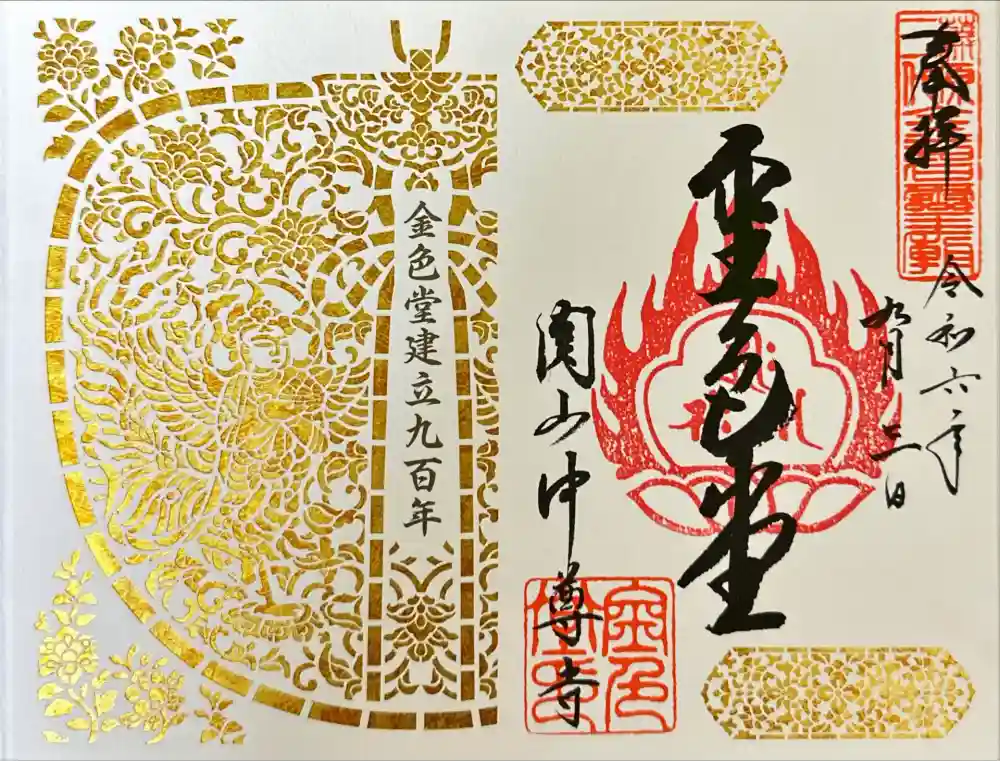 奉拝
令和六年
九月三日
金色堂
関山中尊寺
金色堂建立九百年